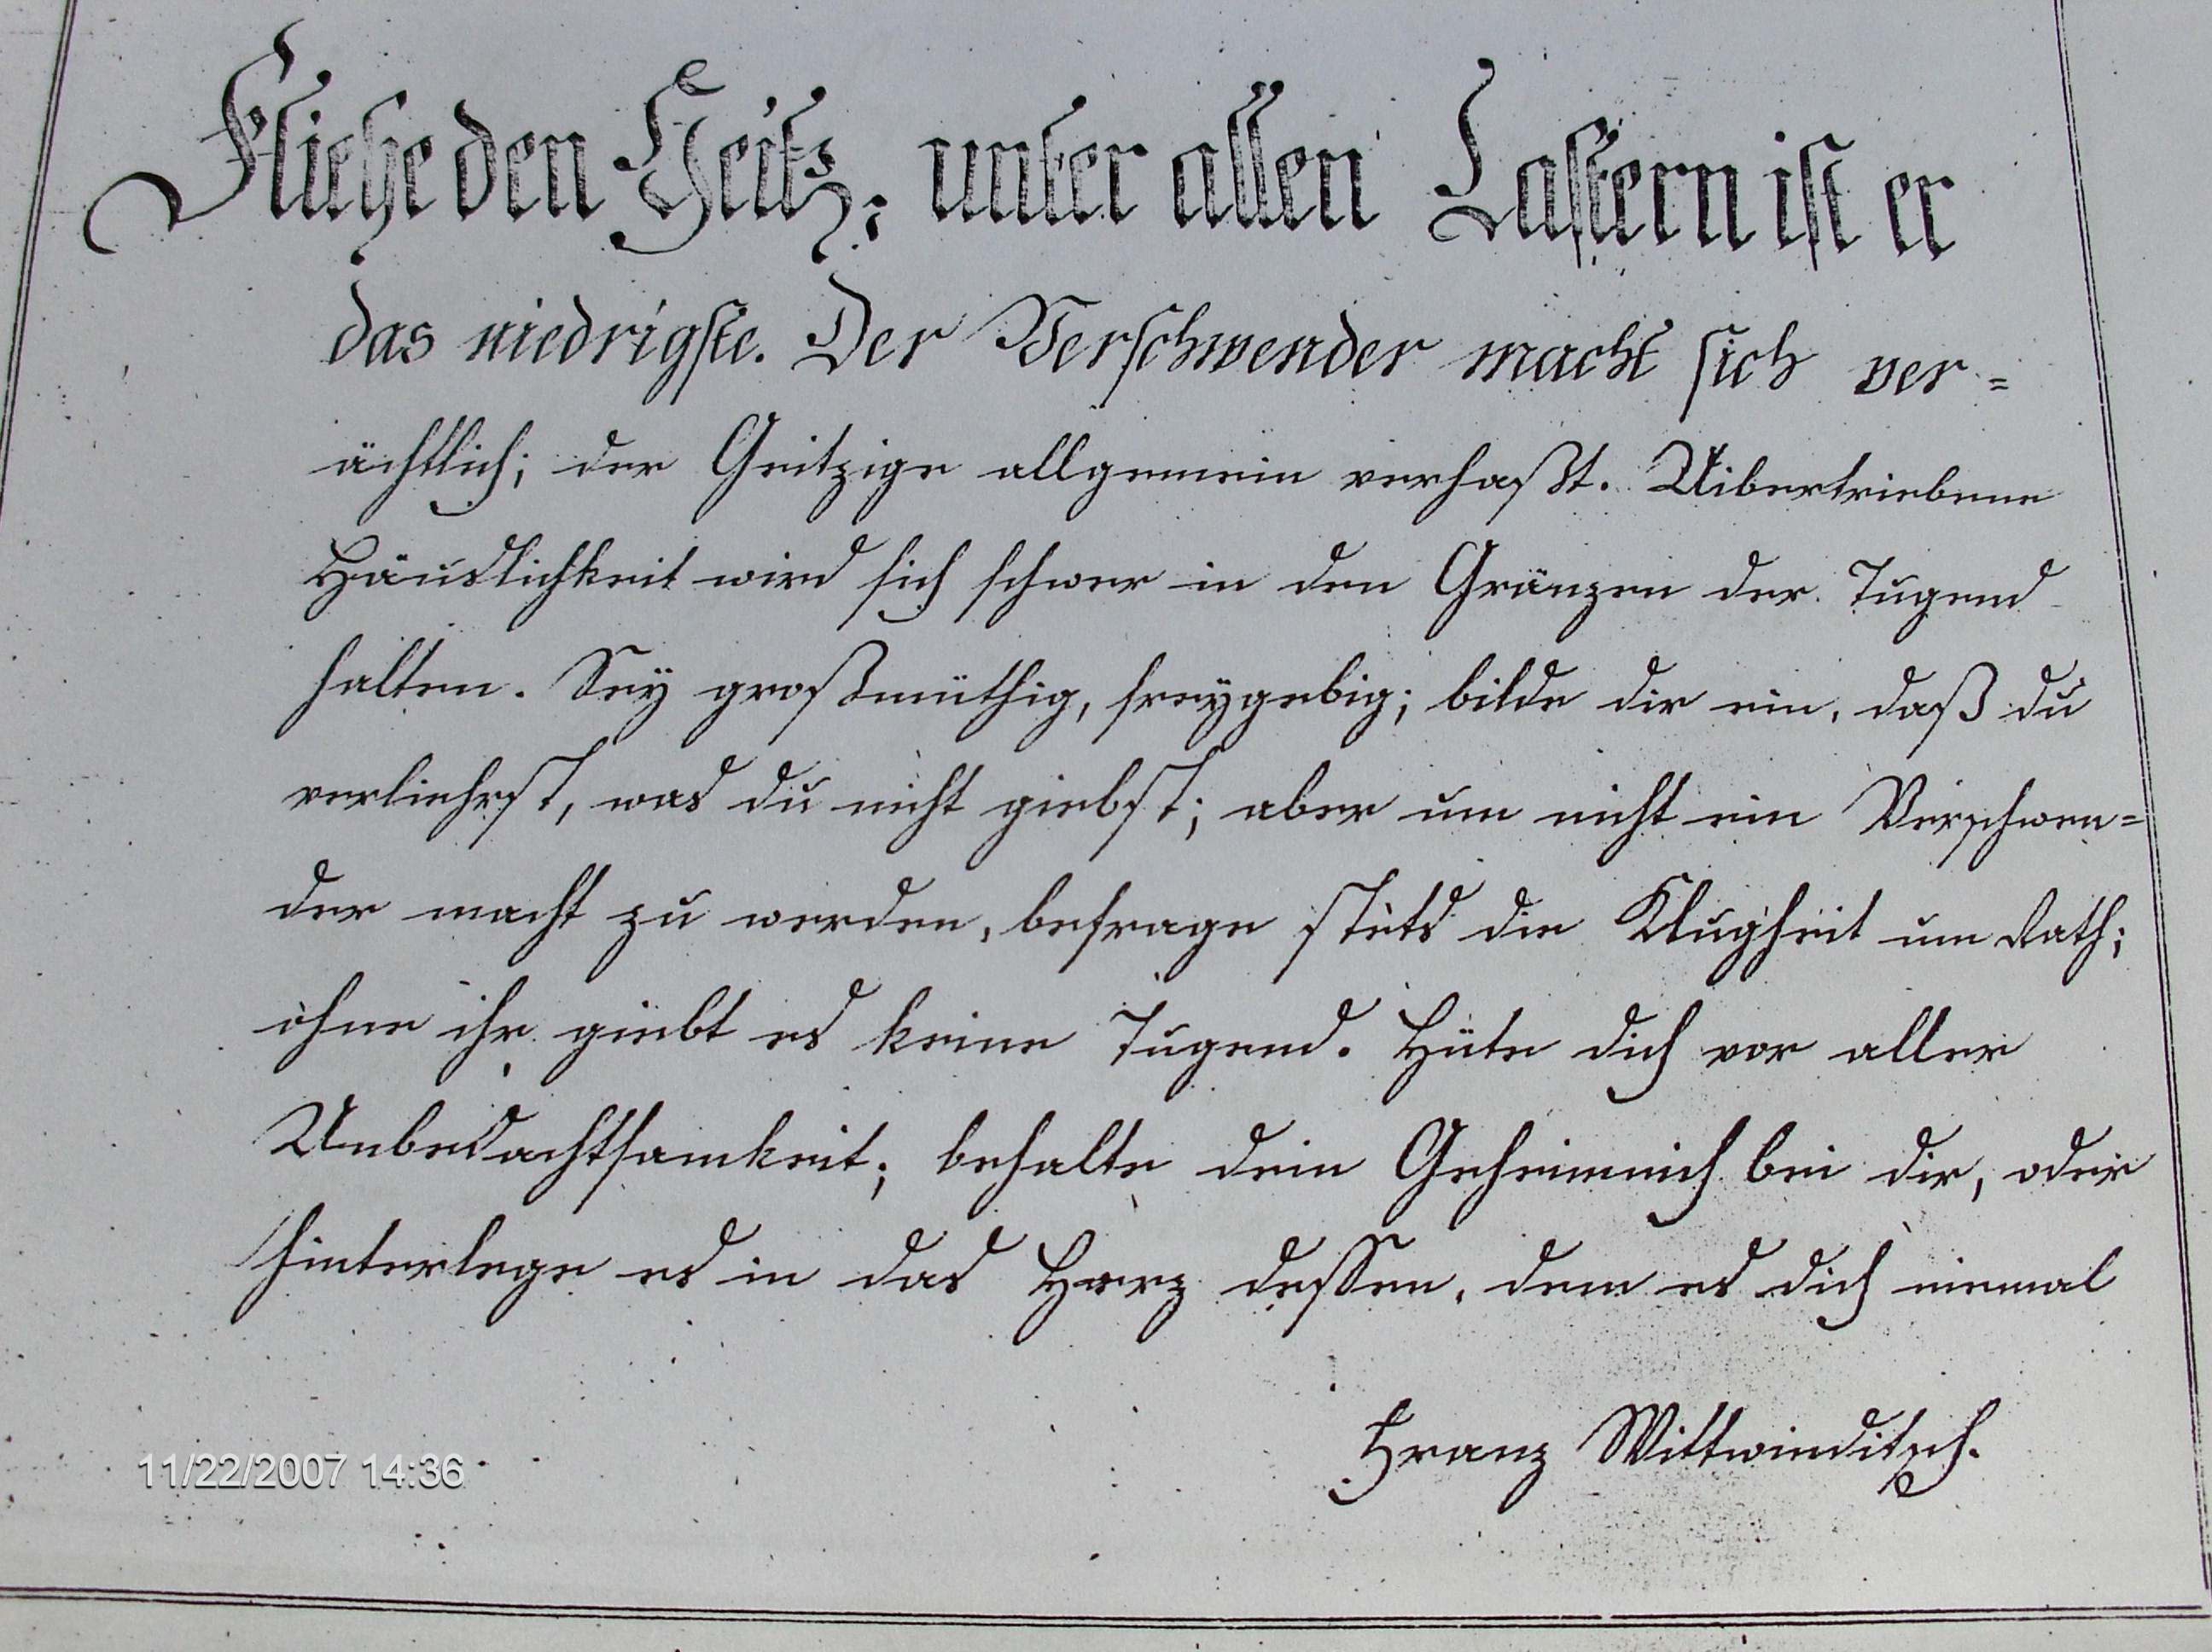 Fliehe den Geitz; unter allen Lastern ist er
das niedrigste. Der Verschwender macht sich ver=
ächtlich; der Geitzige allgemein verhaßt. Uibertriebene
Häuslichkeit wird sich schwer in den Gränzen der Tugend
halten. Sey großmüthig, freygebig; bilde dir ein, daß du
verliehrst, was du nicht giebst; aber um nicht ein Verschwen=
der macht zu werden, befrage stets die Klugheit um Rath;
ohne ihr giebt es keine Tugend. Hüte dich vor aller
Unbedachtsamkeit; behalte dein Geheimnich bei dir, oder
hinterlege es in das Herz dessen, dem es dich niemal
Franz Wittwinditsch.
11/22/2007 14:36